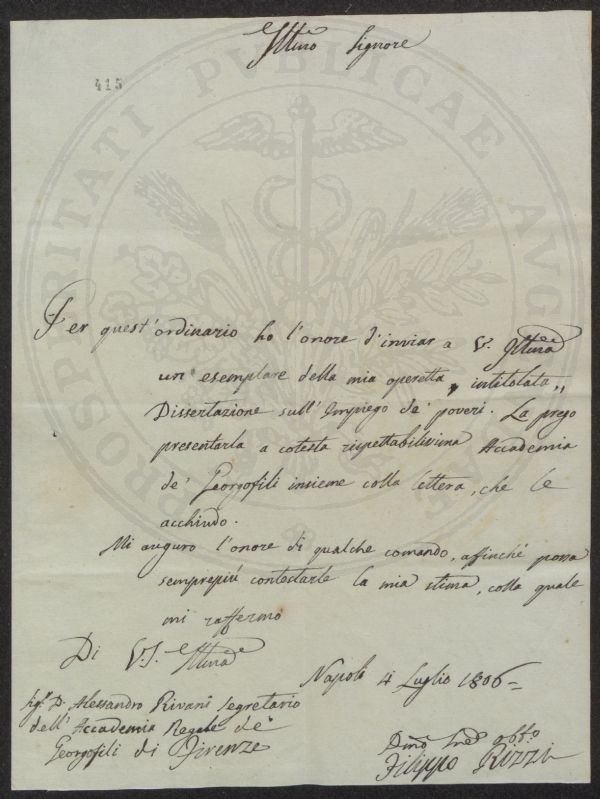 Ittmo Signore
415
PROSPERITATI PUBLICAE AUG
Per quest'ordinario ho l'onore d'inviar a V. Ittma
un esemplare della mia operetta, intitolata,,
Dissertazione sull'Impiego de' poveri. La prego
presentarla a cotesta rispettabilissima Accademia
de' Georgofili insieme colla lettera, che le
acchiudo.
Mi auguro l'onore di qualche comando, affinché possa
semprepiù contestarle la mia stima, colla quale
mi raffermo
Di V.S. Ittma
Napoli 4 Luglio 1806
Sigr. D. Alessandro Rivani Segretario
dell'Accademia Regale de'
Georgofili di Firenze
obbo
Filippo Rizzi